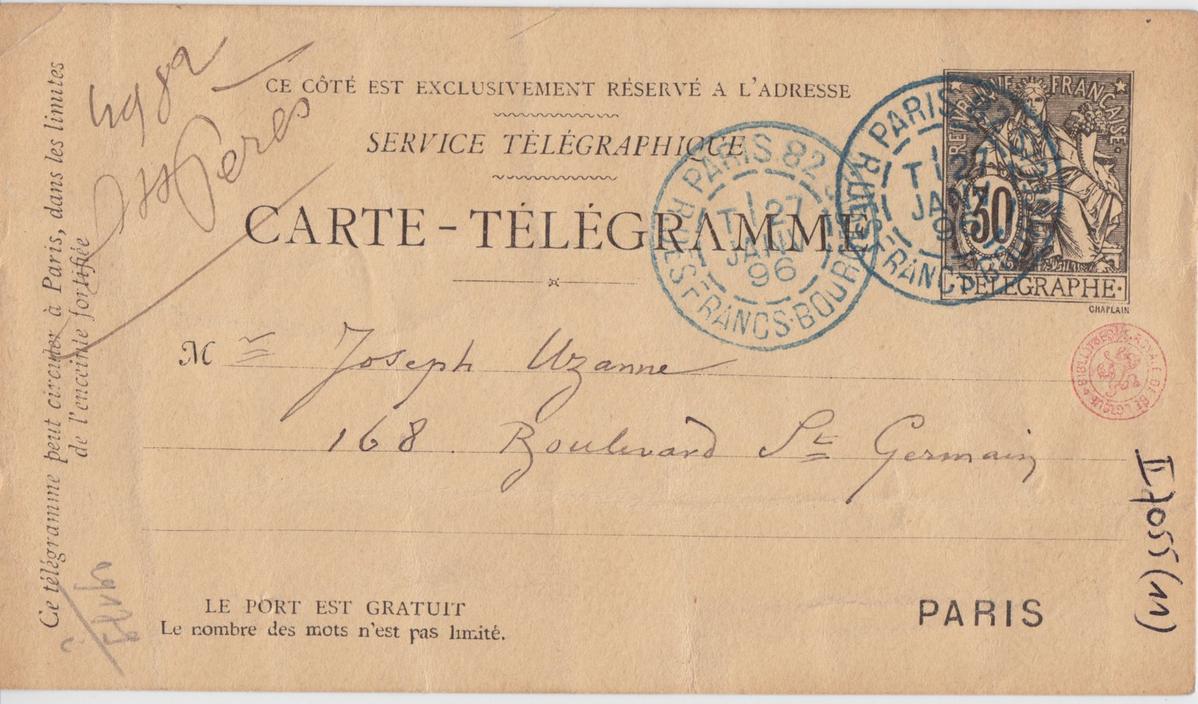 CE CÔTÉ EST EXCLUSIVEMENT RÉSERVÉ A L'ADRESSE
SERVICE TÉLÉGRAPHIQUE
CARTE-TÉLÉGRAMME
RÉPUBLIQUE FRANÇAISE
30
TÉLÉGRAPHE
CHAPLAIN
PARIS 82
27
JANV
96
R DES FRANCS-BOURGEOIS
PARIS 82
27
JANV
96
R DES FRANCS-BOURGEOIS
Mr Joseph Uzanne
168 Boulevard St Germain
BIBLIOTHECA REGIA
BELGIQUE
LE PORT EST GRATUIT
Le nombre des mots n'est pas limité.
PARIS
Ce télégramme peut circuler à Paris, dans les limites
de l'enceinte fortifiée
4982
II 7055 (11)